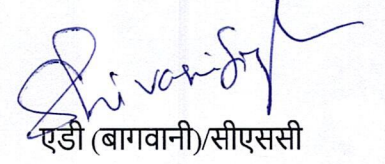 Shivani Singh
एडी (बागवानी)/सीएससी